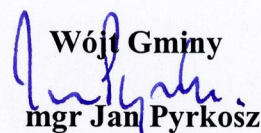 Wójt Gminy
mgr Jan Pyrkosz